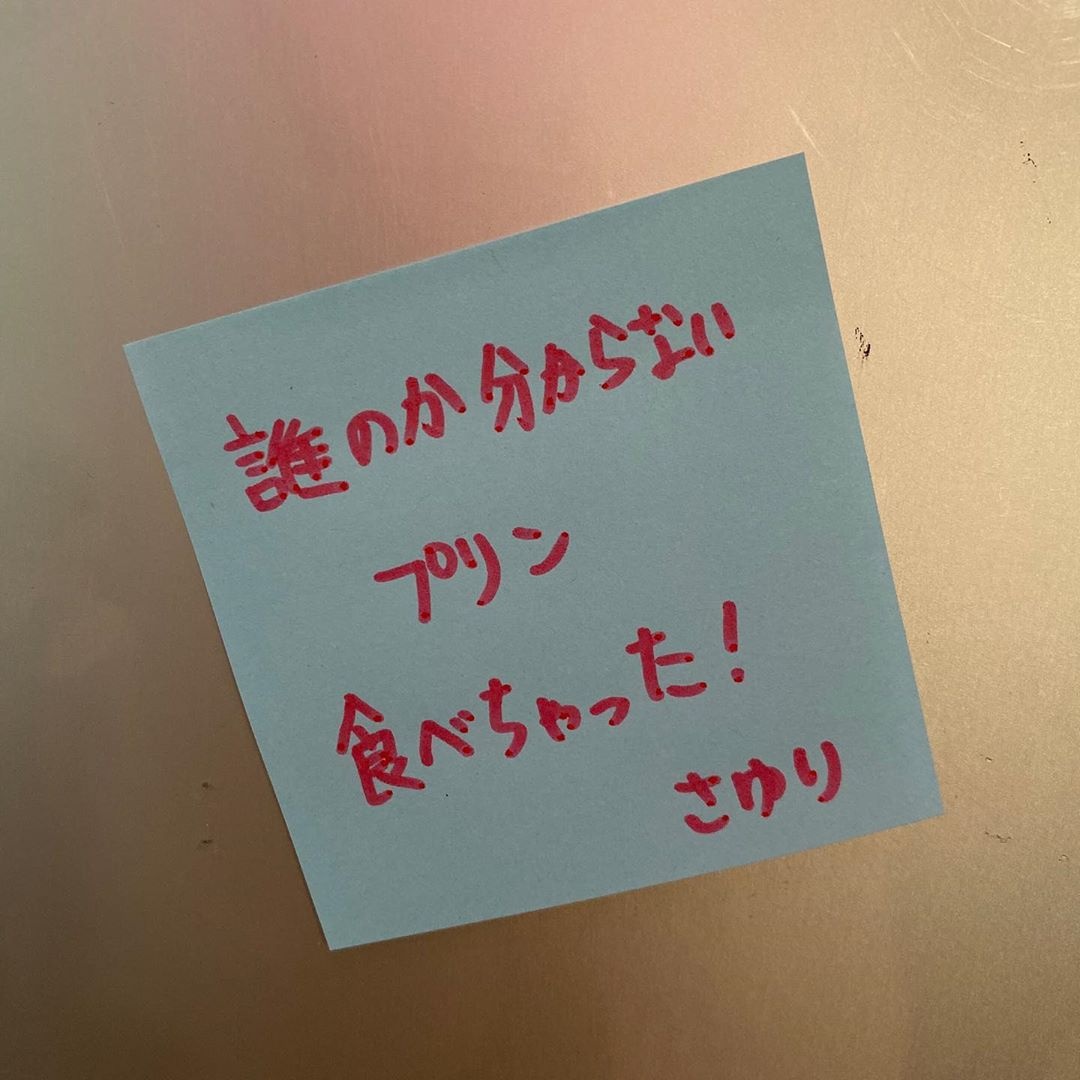 誰のか分からない
プリン
食べちゃった！
さゆり